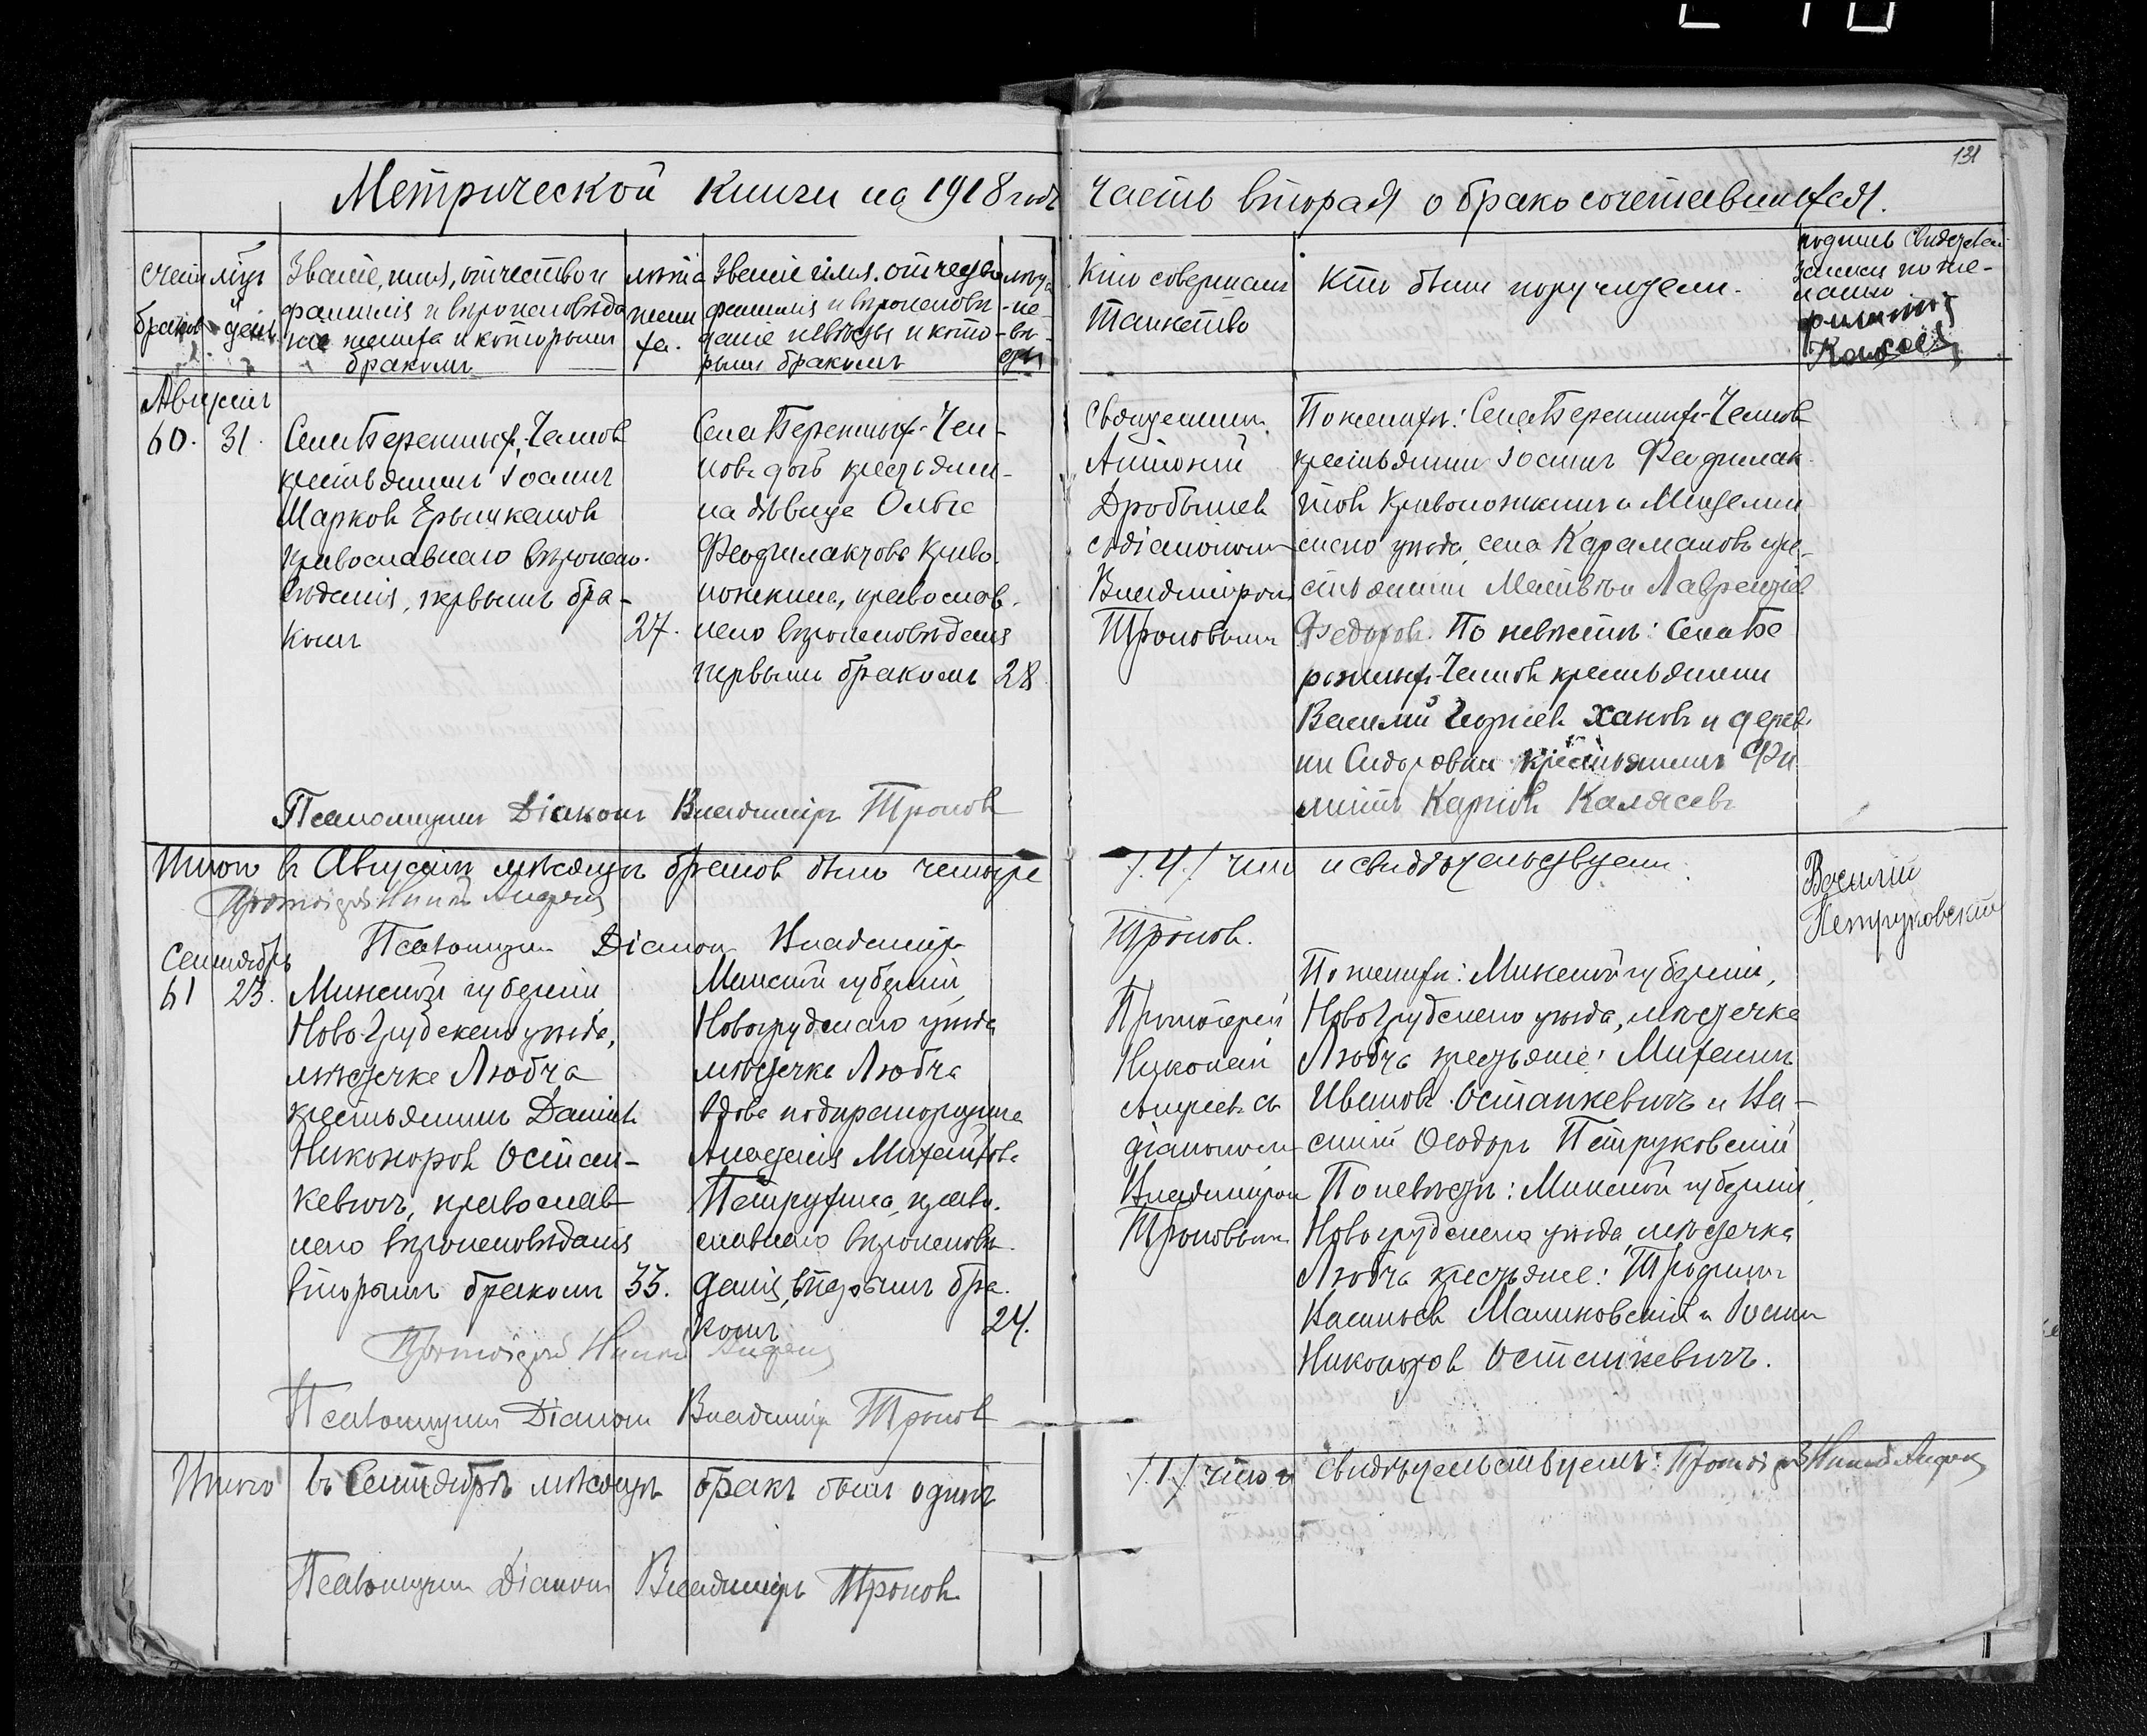 131
Метрической книги на 1918 годъ
часть вторая о бракосочетавшихся.
счетъ браковъ
мѣс. день
Званіе, имя, отчество и
фамилія и вѣроисповѣда
ніе жениха и которымъ
бракомъ
лѣта
жени
ха.
Званіе имя. отчество
фамилія и вѣроисповѣ
даніе невѣсты и кото-
рымъ бракомъ
лѣта
-не-
-вѣ-
сты
Кто совершалъ
Таинство
Кто были поручители.
подпись свидетел.
записи по же-
ланію
Августъ
60. 31.
Села Бережныхъ-Челновъ
крестьянинъ Іоаннъ
Марковъ Ерыжкановъ
православнаго вѣроиспо-
вѣданія, первымъ бра-
комъ
27.
Села Бережныхъ-Чел-
новъ дочь крестьяни-
на дѣвица Ольга
Феофилактова Криво
ножкина, православ-
наго вѣроисповѣданія
первымъ бракомъ
28
Священник
Антоній
Дробышев
съ діакономъ
Владиміром
Троновымъ
По женихѣ: Села Бережныхъ-Челновъ
крестьянинъ Іоаннъ Феофилак-
товъ Кривоножкинъ и Мензелин
скаго уѣзда, села Карамановъ кре-
стьянинъ Матвѣй Лаврентіев
Федоров. По невѣстѣ: Села Бе
режныхъ-Челновъ крестьянинъ
Василій Георгіев Хановъ и дерев-
ни Сидоровки крестьянинъ Фи
липпъ Карповъ Калясевъ
Псаломщикъ Діаконъ Владиміръ Троновъ
Итого въ Августѣ мѣсяцѣ браков было четыре
/.4./ что и свидѣтельствуем.
Протоіерей Никол Андреев
Псаломщик Діакон Владимір
Тронов.
Василій
Петруковскій
Сентябрь
61 23.
Минской губерніи,
Ново-Грудскаго уѣзда,
мѣстечка Любча
крестьянинъ Даніилъ
Никоноров Осташ-
кевичъ, православ
наго вѣроисповѣданія
вторымъ бракомъ
33.
Минской губерніи,
Новогрудскаго уѣзда
мѣстечка Любча
вдова подпрапорщика
Анастасія Михайлова
Петрухина, право-
славнаго вѣроисповѣ
данія, вторымъ бра-
комъ
24.
Протоіерей
Николай
Андреев съ
діаконом
Владимиром
Троновым
По женихѣ: Минской губерніи,
Новогрудскаго уѣзда, мѣстечка
Любча крестьяне: Михаилъ
Ивановъ Осташкевичъ и Ва-
силій Ѳеодоръ Петруковскій
По невѣстѣ: Минской губерніи,
Новогрудскаго уѣзда мѣстечка
Любча крестьяне: Трофимъ
Васильев Маликовскій и Іосиф
Никоноров Осташкевичъ.
Протоіерей Никол Андреев
Псаломщик Діакон Владимір Тронов
Итого въ Сентябрѣ мѣсяцѣ бракъ былъ одинъ
/.1./ что и свидѣтельствуемъ: Протоіерей Никол Андреев
Псаломщик Діакон Владиміръ Тронов